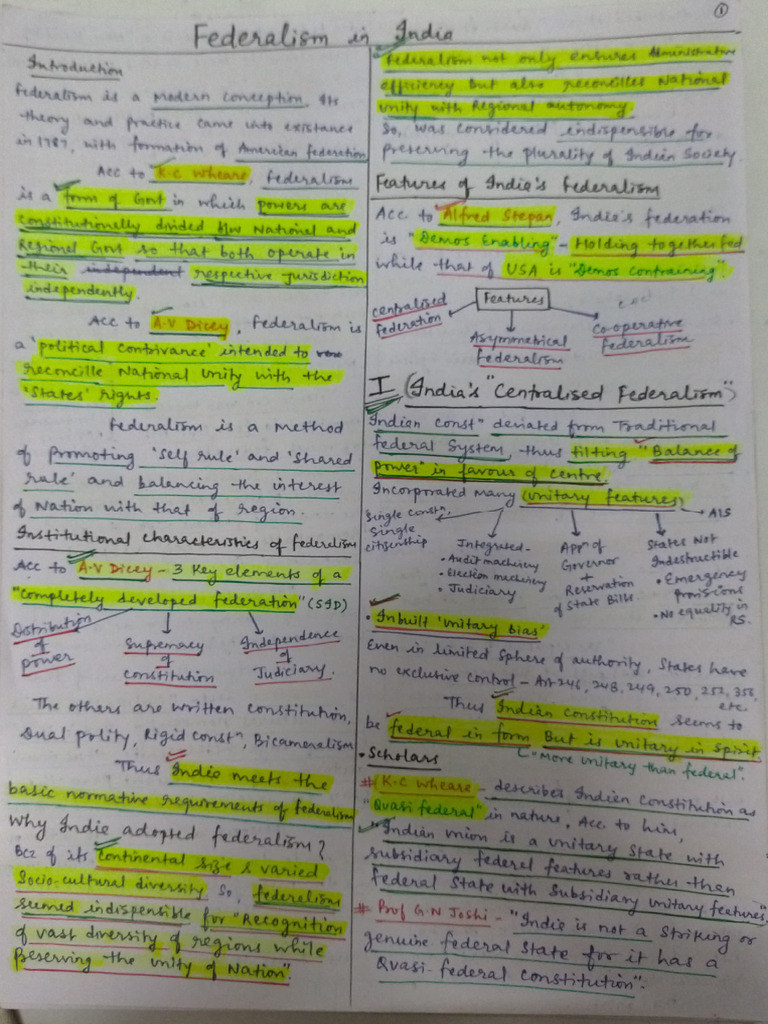 ①
Federalism in India
Introduction
Federalism is a modern conception. Its
theory and practice came into existance
in 1787, with formation of American federation
Acc to K.C Wheare, Federalism
is a form of Govt in which powers are
constitutionally divided b/w National and
Regional Govt so that both operate in
their independent respective jurisdiction
independently.
Acc to A.V Dicey, Federalism is
a 'political contrivance' intended to
reconcille National Unity with the
'States' rights.
Federalism is a Method
of promoting 'self rule' and 'shared
rule' and balancing the interest
of Nation with that of region.
Institutional characteristics of federalism
Acc to A.V Dicey - 3 key elements of a
"completely developed federation" (SID)
Distribution of power
Supremacy of Constitution
Independence of Judiciary.
The others are written constitution,
Dual polity, Rigid constⁿ, Bicameralism
Thus India meets the
basic normative requirements of federalism
Why India adopted federalism?
Bcz of its continental size & varied
Socio-cultural diversity. So, federalism
seemed indispensible for "Recognition
of vast diversity of regions while
Preserving the unity of Nation".
Federalism not only ensures Administrative
efficiency but also reconcilles National
unity with Regional autonomy.
So, was considered indispensible for
preserving the plurality of Indian Society.
Features of India's Federalism
Acc to Alfred Stepan, India's federation
is "Demos Enabling" - Holding together fed
while that of USA is "Demos contraining".
Features
Centralised Federation
Asymmetrical Federalism
Co-operative Federalism
I (India's "Centralised Federalism")
Indian Constⁿ deviated from Traditional
federal System, thus tilting "Balance of
power" in favour of centre.
Incorporated many unitary features
Single constⁿ, Single citizenship
Integrated-
• Audit machinery
• Election machinery
• Judiciary
Appⁿ of Governor
+
Reservation of State Bills.
States Not Indestructible
• Emergency provisions
• No equality in RS.
AIS
• Inbuilt 'unitary bias'
Even in limited sphere of authority, States have
no exclusive control - Art 246, 248, 249, 250, 252, 356,
etc.
Thus Indian Constitution seems to
be federal in form But is unitary in Spirit.
"More unitary than federal".
• Scholars
# K.C Wheare - describes Indian Constitution as
"Quasi federal" in nature. Acc to him,
"Indian union is a unitary State with
subsidiary federal features rather than
Federal State with Subsidiary unitary features".
# Prof G.N Joshi - "India is not a striking or
genuine federal State for it has a
Quasi-federal constitution".